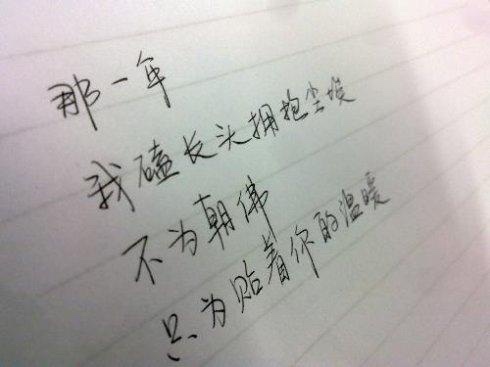 那一年
我磕长头拥抱尘埃
不为朝佛
只为贴着你的温暖